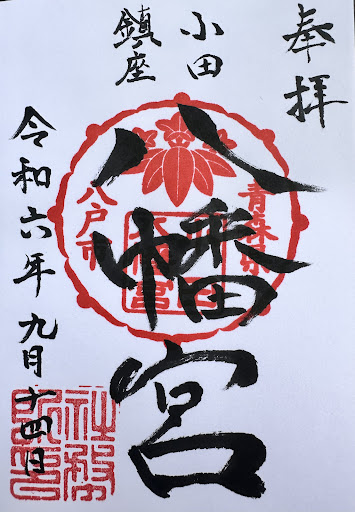 奉拝
小田
鎮座
八幡宮
青森県
八戸市
八幡宮
令和六年九月十四日
社務所印